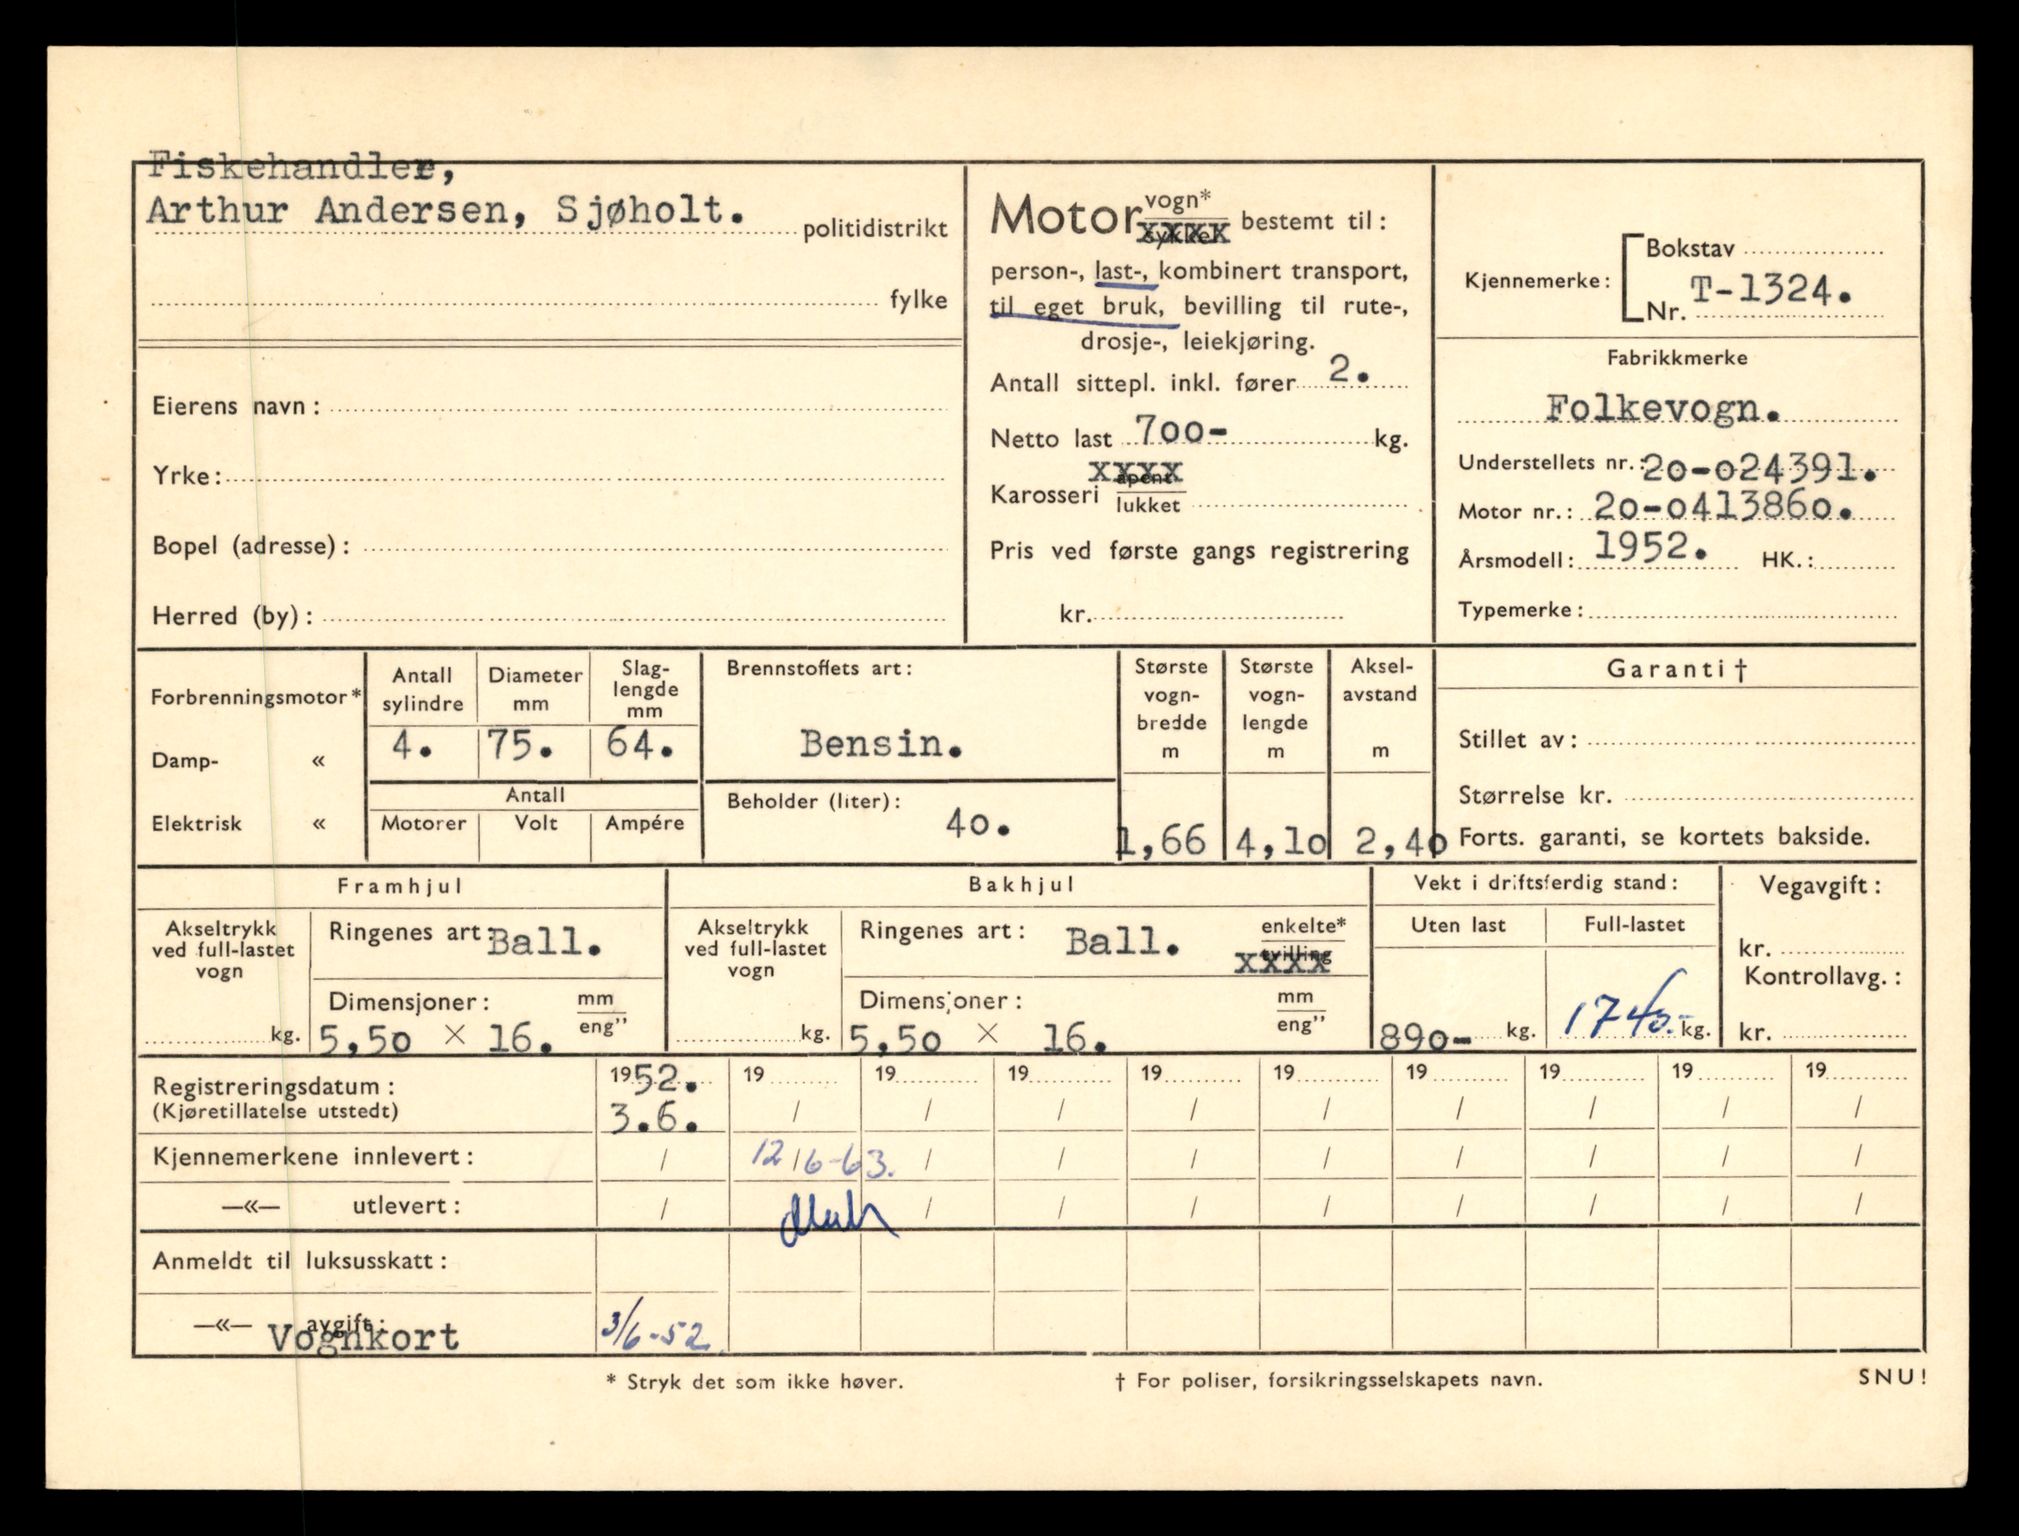 Fiskehandler,
Arthur Andersen, Sjøholt. politidistrikt
fylke
Eierens navn:
Yrke:
Bopel (adresse):
Herred (by):
Motor vogn* bestemt til:
person-, last-, kombinert transport,
til eget bruk, bevilling til rute-,
drosje-, leiekjøring.
Antall sittepl. inkl. fører 2.
Netto last 700- kg.
xxxx
Karosseri åpent
lukket
Pris ved første gangs registrering
kr.
Kjennemerke: Bokstav
Nr. T-1324.
Fabrikkmerke
Folkevogn.
Understellets nr.: 20-024391.
Motor nr.: 20-0413860.
Årsmodell: 1952. HK.:
Typemerke:
Forbrenningsmotor*
Damp- «
Elektrisk «
Antall sylindre
Diameter mm
Slag-lengde mm
4. 75. 64.
Antall
Motorer Volt Ampére
Brennstoffets art:
Bensin.
Beholder (liter):
40.
Største vogn-bredde m
Største vogn-lengde m
Aksel-avstand m
1,66 4,10 2,40
Garanti †
Stillet av:
Størrelse kr.
Forts. garanti, se kortets bakside.
Framhjul
Akseltrykk ved full-lastet vogn
kg.
Ringenes art: Ball.
Dimensjoner: mm
eng"
5,50 × 16.
Bakhjul
Akseltrykk ved full-lastet vogn
kg.
Ringenes art: Ball. enkelte*
tvilling xxxx
Dimensjoner: mm
eng"
5,50 × 16.
Vekt i driftsferdig stand:
Uten last Full-lastet
890- kg. 1740.- kg.
Vegavgift:
kr.
Kontrollavg.:
kr.
Registreringsdatum: 1952. 19 19 19 19 19 19 19 19 19
(Kjøretillatelse utstedt) 3.6. / / / / / / / / /
Kjennemerkene innlevert: / 12/6-63. / / / / / / / /
—«— utlevert: / / / / / / / / /
Anmeldt til luksusskatt:
—«— avgift:
Vognkort 3/6-52.
* Stryk det som ikke høver. † For poliser, forsikringsselskapets navn. SNU!